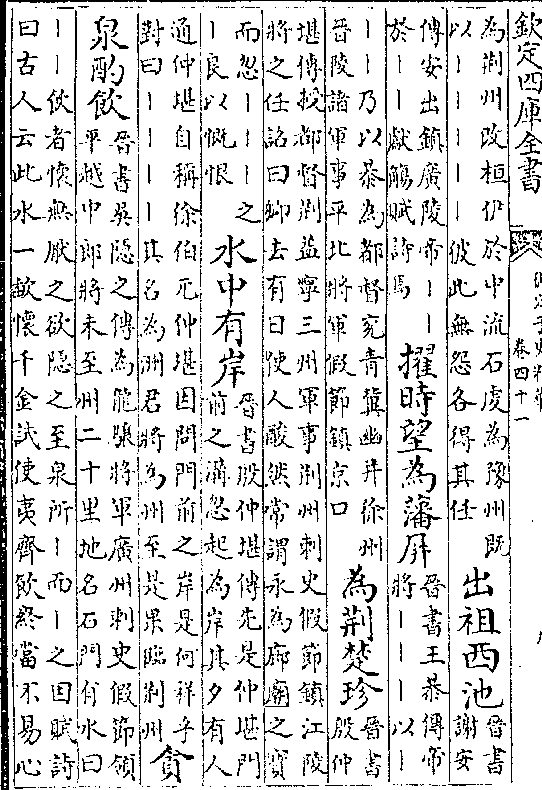 欽定四庫全書
御定子史精華 卷四十一
為荆州改桓伊於中流石虔為豫州既
以丨丨丨丨彼此無怨各得其任
出祖西池
晉書
謝安
傳安出鎮廣陵帝丨丨
於丨丨獻觴賦詩焉
擢時望為藩屏
晉書王恭傳帝
將丨丨丨以丨
丨丨乃以恭為都督兗青冀幽并徐州
晉陵諸軍事平北將軍假節鎮京口
為荆楚珍
晉書
殷仲
堪傳授都督荆益寧三州軍事荆州刺史假節鎮江陵
將之任詔曰卿去有日使人酸然常謂永為廊廟之寶
而忽丨丨丨之
丨良以慨恨
水中有岸
晉書殷仲堪傳先是仲堪門
前之溝忽起為岸其夕有人
通仲堪自稱徐伯元仲堪因問門前之岸是何祥乎
對曰丨丨丨丨其名為洲君將為州至是果臨荆州
貪
泉酌飲
晉書吳隱之傳為龍驤將軍廣州刺史假節領
平越中郎將未至州二十里地名石門有水曰
丨丨飲者懷無厭之欲隱之至泉所丨而丨之因賦詩
曰古人云此水一歃懷千金試使夷齊飲終當不易心